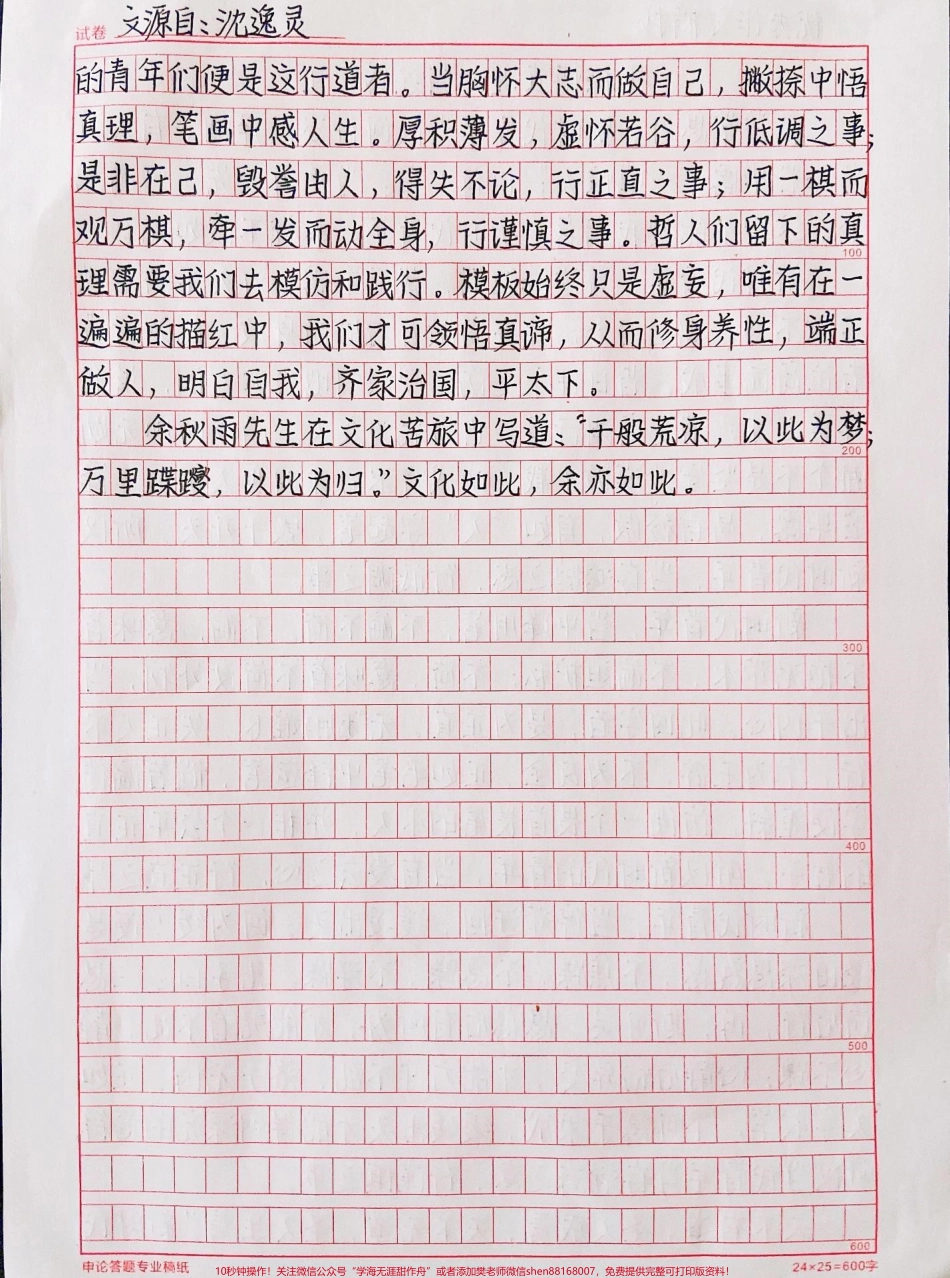 试卷 文源自：沈逸灵
的青年们便是这行道者。当胸怀大志而做自己，撇捺中悟
真理，笔画中感人生。厚积薄发，虚怀若谷，行低调之事；
是非在己，毁誉由人，得失不论，行正直之事；用一棋而
观万棋，牵一发而动全身，行谨慎之事。哲人们留下的真
100
理需要我们去模仿和践行。模板始终只是虚妄，唯有在一
遍遍的描红中，我们才可领悟真谛，从而修身养性，端正
做人，明白自我，齐家治国，平太下。
余秋雨先生在文化苦旅中写道：“千般荒凉，以此为梦；
200
万里蹀躞，以此为归。”文化如此，余亦如此。
300
400
500
600
申论答题专业稿纸
24×25=600字
10秒钟操作！关注微信公众号“学海无涯甜作舟”或者添加樊老师微信shen88168007，免费提供完整可打印版资料！